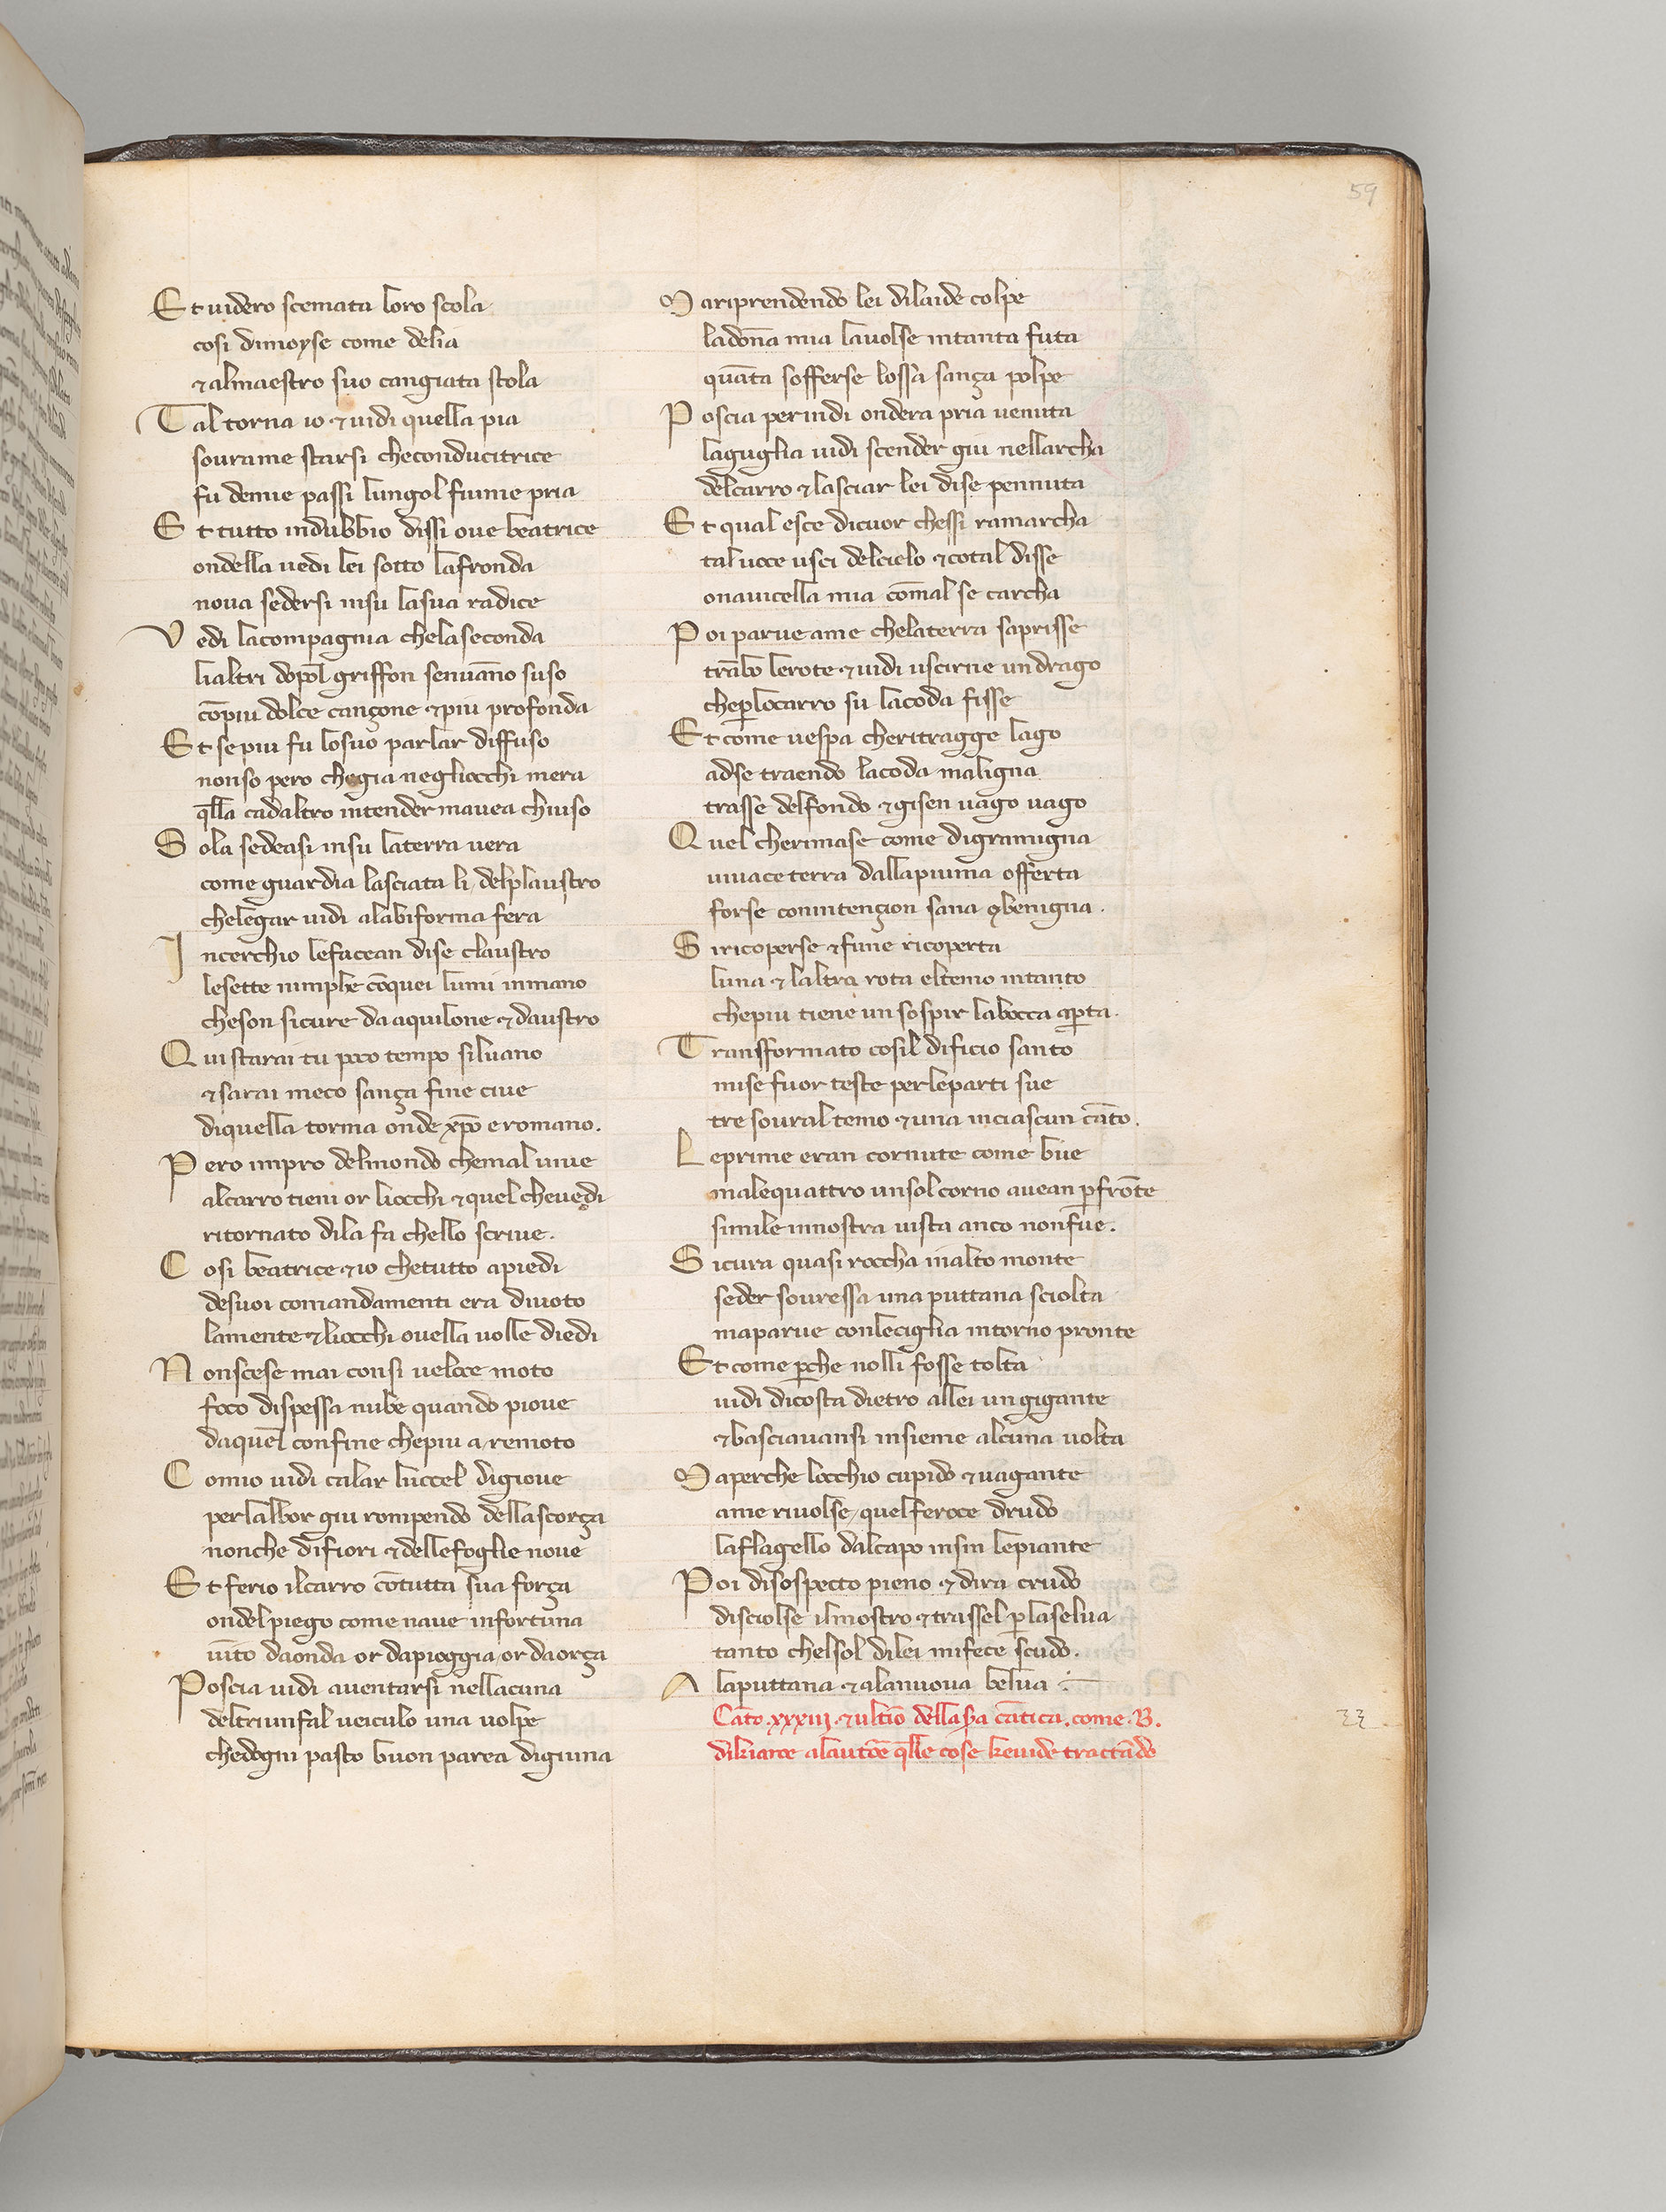 59
Et uidero scemata loro scola
cosi dimoyse come delia
& almaestro suo cangiata stola
Tal torna io & uidi quella pia
sourame starsi checonducitrice
fu demie passi lungol fiume pria
Et tutto indubbio dissi oue beatrice
ondella uedi lei sotto lafronda
noua sedersi insu lasua radice
Vedi lacompagnia chelaseconda
lialtri dopol griffon senuāno suso
cōpiu dolce cançone & piu profonda
Et se piu fu losuo parlar diffuso
nonso pero chegia negliocchi mera
qlla cadaltro intender mauea chiuso
Sola sedeasi insu laterra uera
come guardia lasciata li delplaustro
chelegar uidi alabiforma fera
Incerchio lefacean dise claustro
lesette nimphe cōquei lumi inmano
cheson sicure da aquilone & daustro
Qui starai tu poco tempo siluano
& sarai meco sança fine ciue
diquella torma onde xpō e romano.
Pero inpro delmondo chemal uiue
alcarro tieni or liocchi & quel cheuedi
ritornato dila fa chello scriue.
Cosi beatrice & io chetutto apiedi
desuoi comandamenti era diuoto
lamente & liocchi ouella uolle diedi
Nonscese mai consi veloce moto
foco dispessa nube quando pioue
daquel confine chepiu a remoto
Comio uidi calar luccel digioue
perlalbor giu rompendo dellascorça
nonche difiori & dellefoglie noue
Et ferio ilcarro cōtutta sua força
ondel piego come naue infortuna
uīto daonda or dapioggia or daorça
Poscia uidi auentarsi nellacuna
deltriunfal ueiculo una uolpe
chedogni pasto buon parea digiuna
Mariprendendo lei dilaide colpe
ladonna mia lauolse intanta futa
quāta sofferse lossa sança polpe
Poscia perindi ondera pria uenuta
laguglia uidi scender giu nellarcha
delcarro & lasciar lei dise pennuta
Et qual esce dicuor chessi ramarcha
tal uoce usci delcielo & cotal disse
onauicella mia cōmal se carcha
Poi parue ame chelaterra saprisse
trābo lerote & uidi uscirne undrago
cheplocarro su lacoda fisse
Et come uespa cheritragge lago
adse traendo lacoda maligna
trasse delfondo & gisen uago uago
Quel cherimase come digramigna
uiuace terra dallapiuma offerta
forse conintençion sana & benigna.
Siricoperse & fune ricoperta
luna & laltra rota eltemo intanto
chepiu tiene un sospir labocca aperta.
Transformato cosil dificio santo
mise fuor teste perleparti sue
tre soural temo & una inciascun cāto.
Leprime eran cornute come bue
malequattro unsol corno auean p frōte
simile mostra uista anco nonfue.
Sicura quasi roccha inalto monte
seder souressa una puttana sciolta
maparue conleciglia intorno pronte
Et come pche nolli fosse tolta
uidi dicosta dietro allei un gigante
& basciauansi insieme alcuna uolta
Maperche locchio cupido & uagante
ame riuolse quel feroce drudo
laflagello dalcapo insin lepiante
Poi disospecto pieno & dira crudo
disciolse ilmostro & trassel p laselua
tanto chelsol dilei mifece scudo.
Alaputtana & alanuoua belua
Cāto .xxxiij. & ultīo dellasā cātica. come .B.
dikiaroe alautōe qlle cose keuide tractādo
33